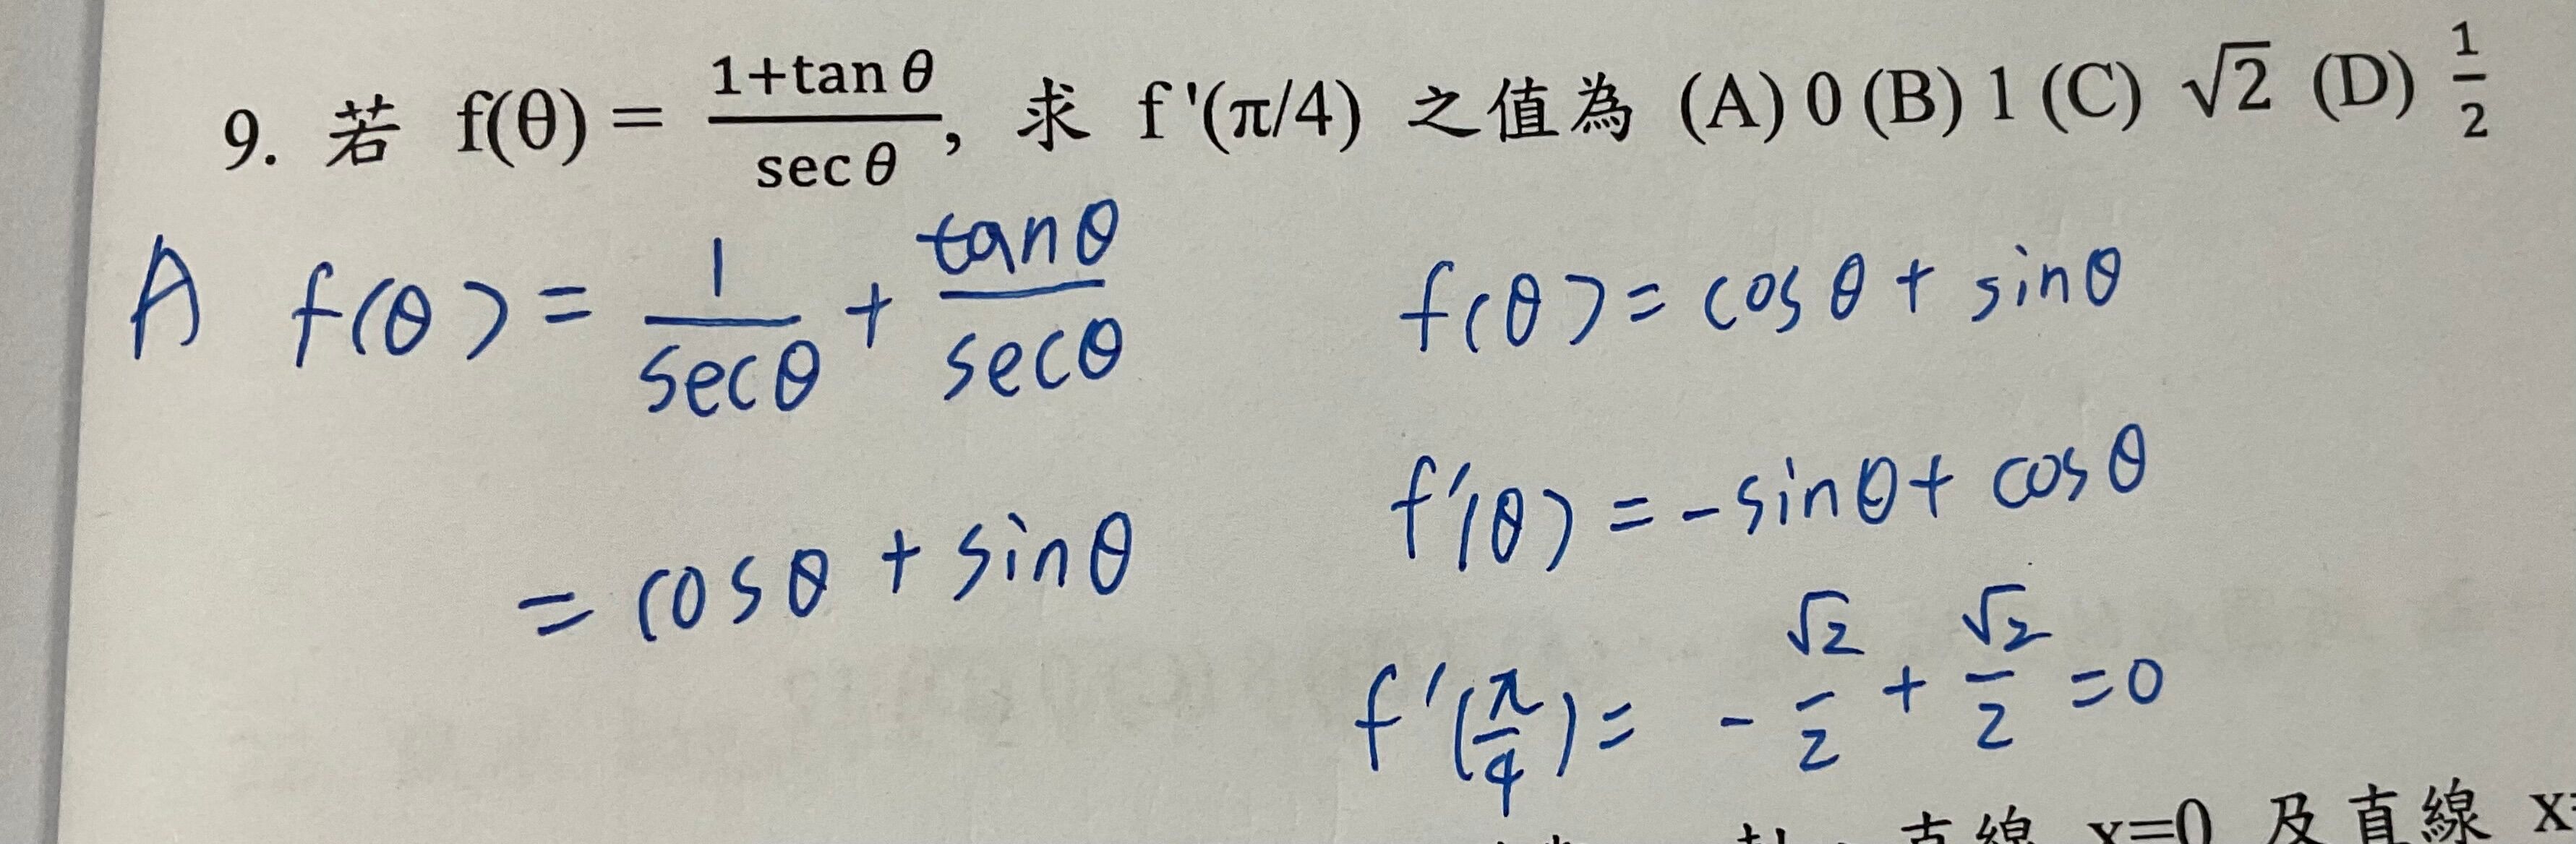 9. 若 f(θ) = \frac{1+tan θ}{sec θ}, 求 f '(π/4) 之值為 (A) 0 (B) 1 (C) √2 (D) \frac{1}{2}
A f(θ) = \frac{1}{secθ} + \frac{tanθ}{secθ}
= cosθ + sinθ
f(θ) = cosθ + sinθ
f'(θ) = -sinθ + cosθ
f'(\frac{π}{4}) = -\frac{√2}{2} + \frac{√2}{2} = 0
直線 x=0 及直線 x=